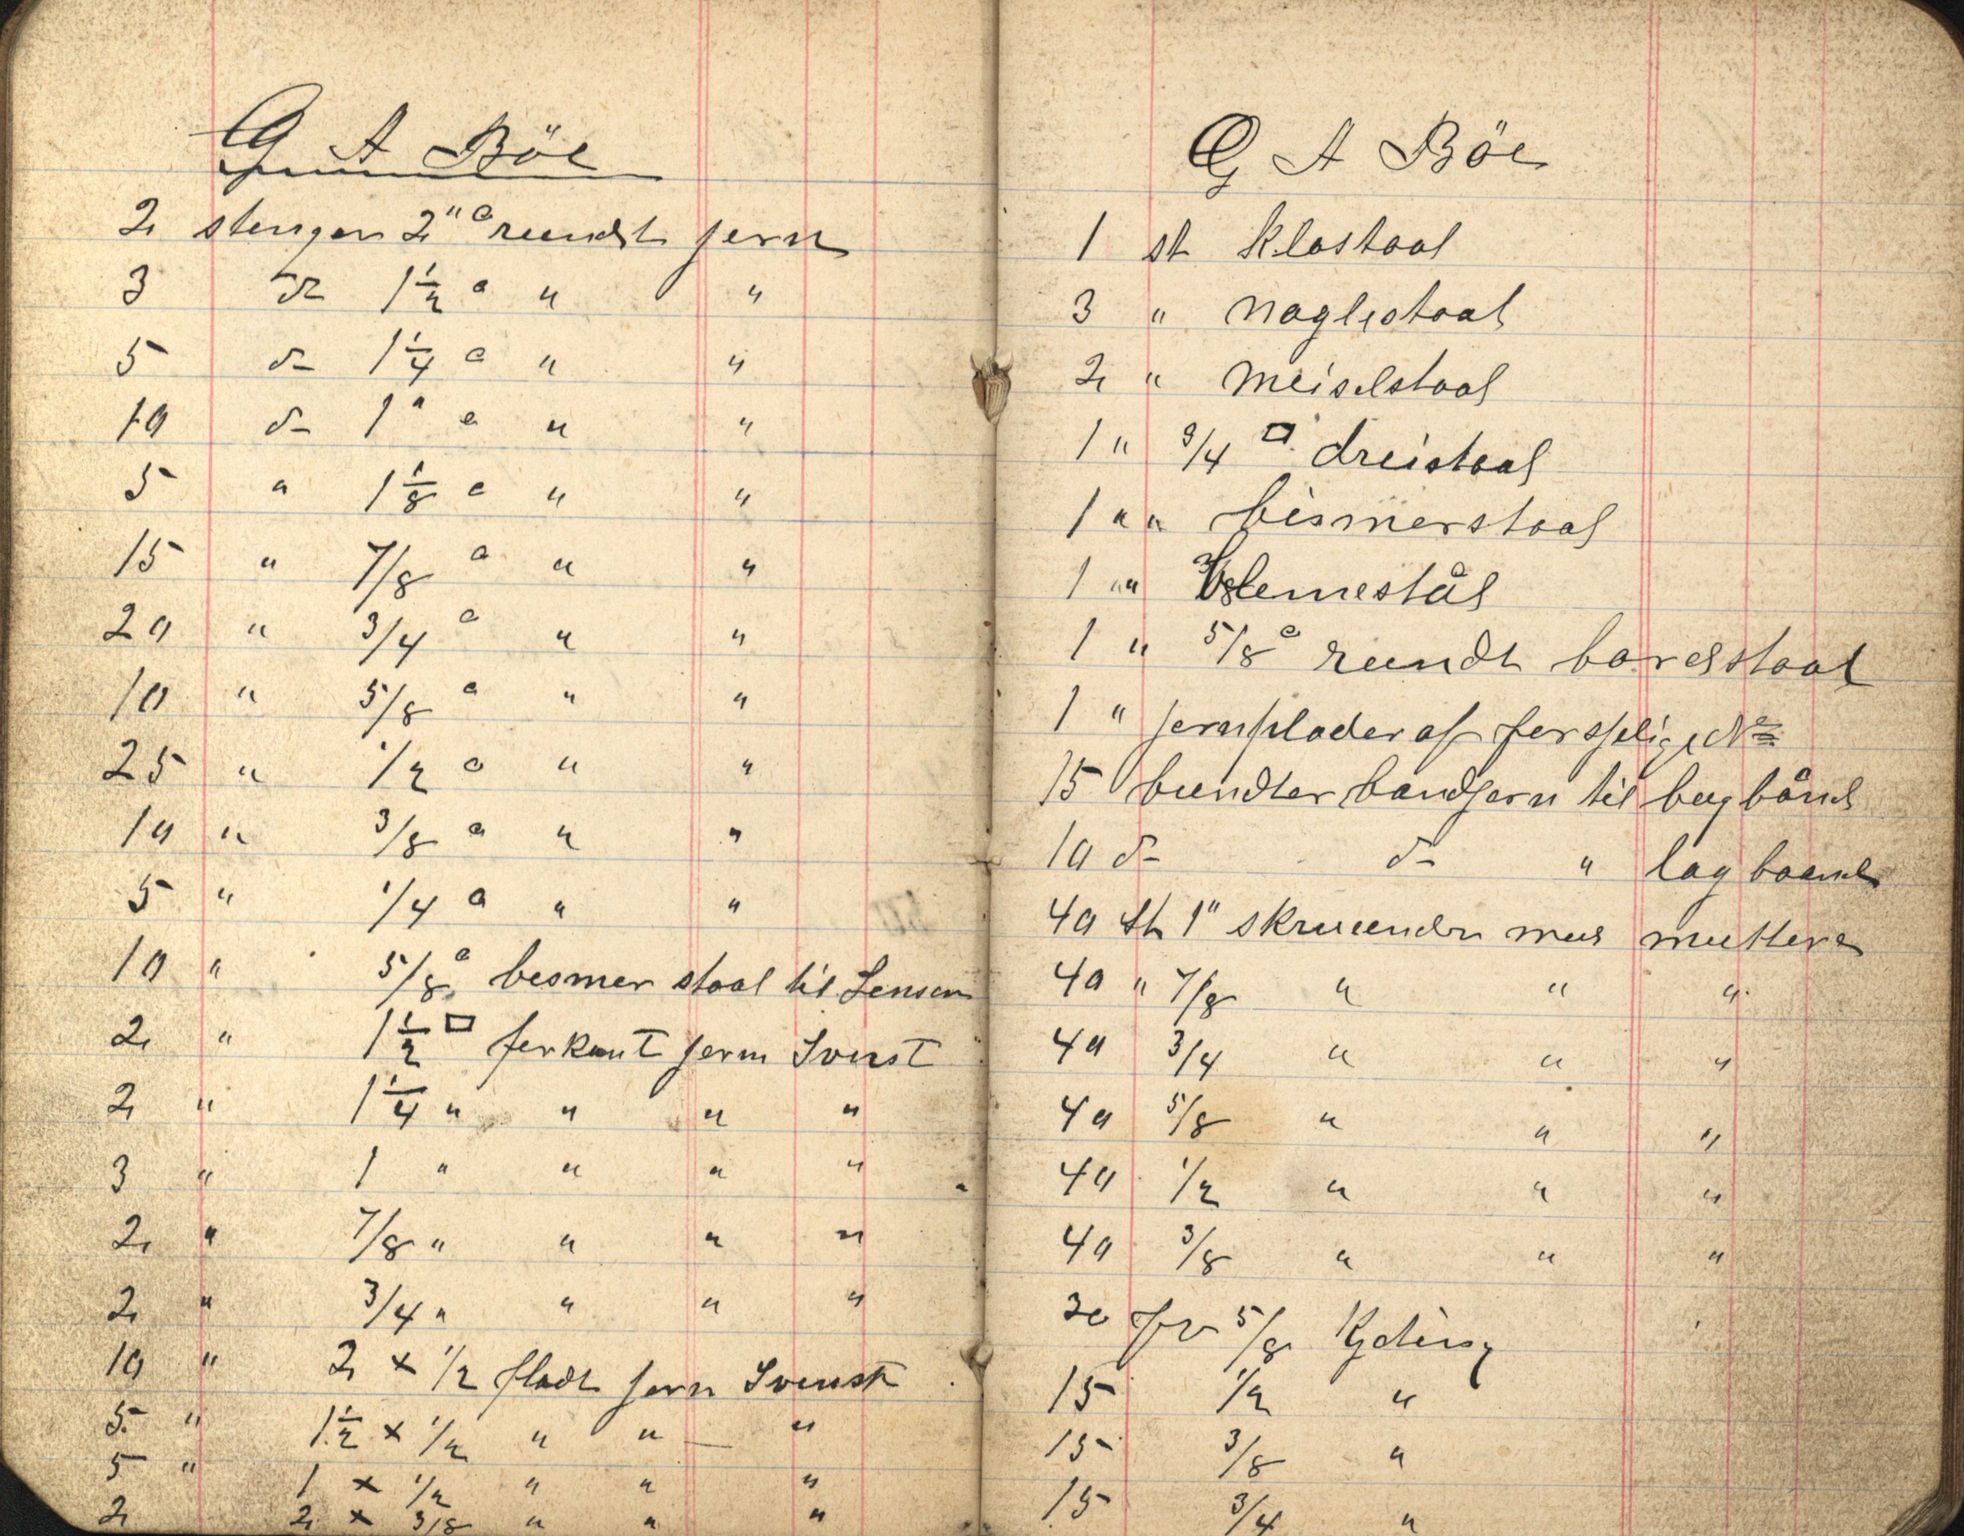 G A Böe
2 stenger 2" o rundt jern
3 do 1 1/2 o " "
5 do 1 1/4 o " "
10 do 1" o " "
5 " 1 1/8 o " "
15 " 7/8 o " "
20 " 3/4 o " "
10 " 5/8 o " "
25 " 1/2 o " "
10 " 3/8 o " "
5 " 1/4 o " "
10 " 5/8 o besmer staal til Lensen
2 " 1 1/2 □ ferkant jern Svenst
2 " 1 1/4 " " " "
3 " 1 " " " "
2 " 7/8 " " " "
2 " 3/4 " " " "
10 " 2 x 1/2 fladt jern Svenst
5 " 1 1/2 x 1/2 " " "
5 " 1 x 1/2 " " "
2 2 x 3/8 " " "
G A Böe
1 st klostaal
3 " naglestaal
2 " meiselstaal
1 " 3/4 □ dreistaal
1 " " bismerstaal
1 " "
1 " 5/8 o rundt borestaal
1 " jernplader af No
15 bundter bandjern til bugbånd
10 do do " lagbaand
40 st 1" skrueender med muttere
40 " 7/8 " " "
40 3/4 " " "
40 5/8 " " "
40 1/2 " " "
40 3/8 " " "
20 fv 5/8 Kjæting
15 1/2 "
15 3/8 "
15 3/4 "